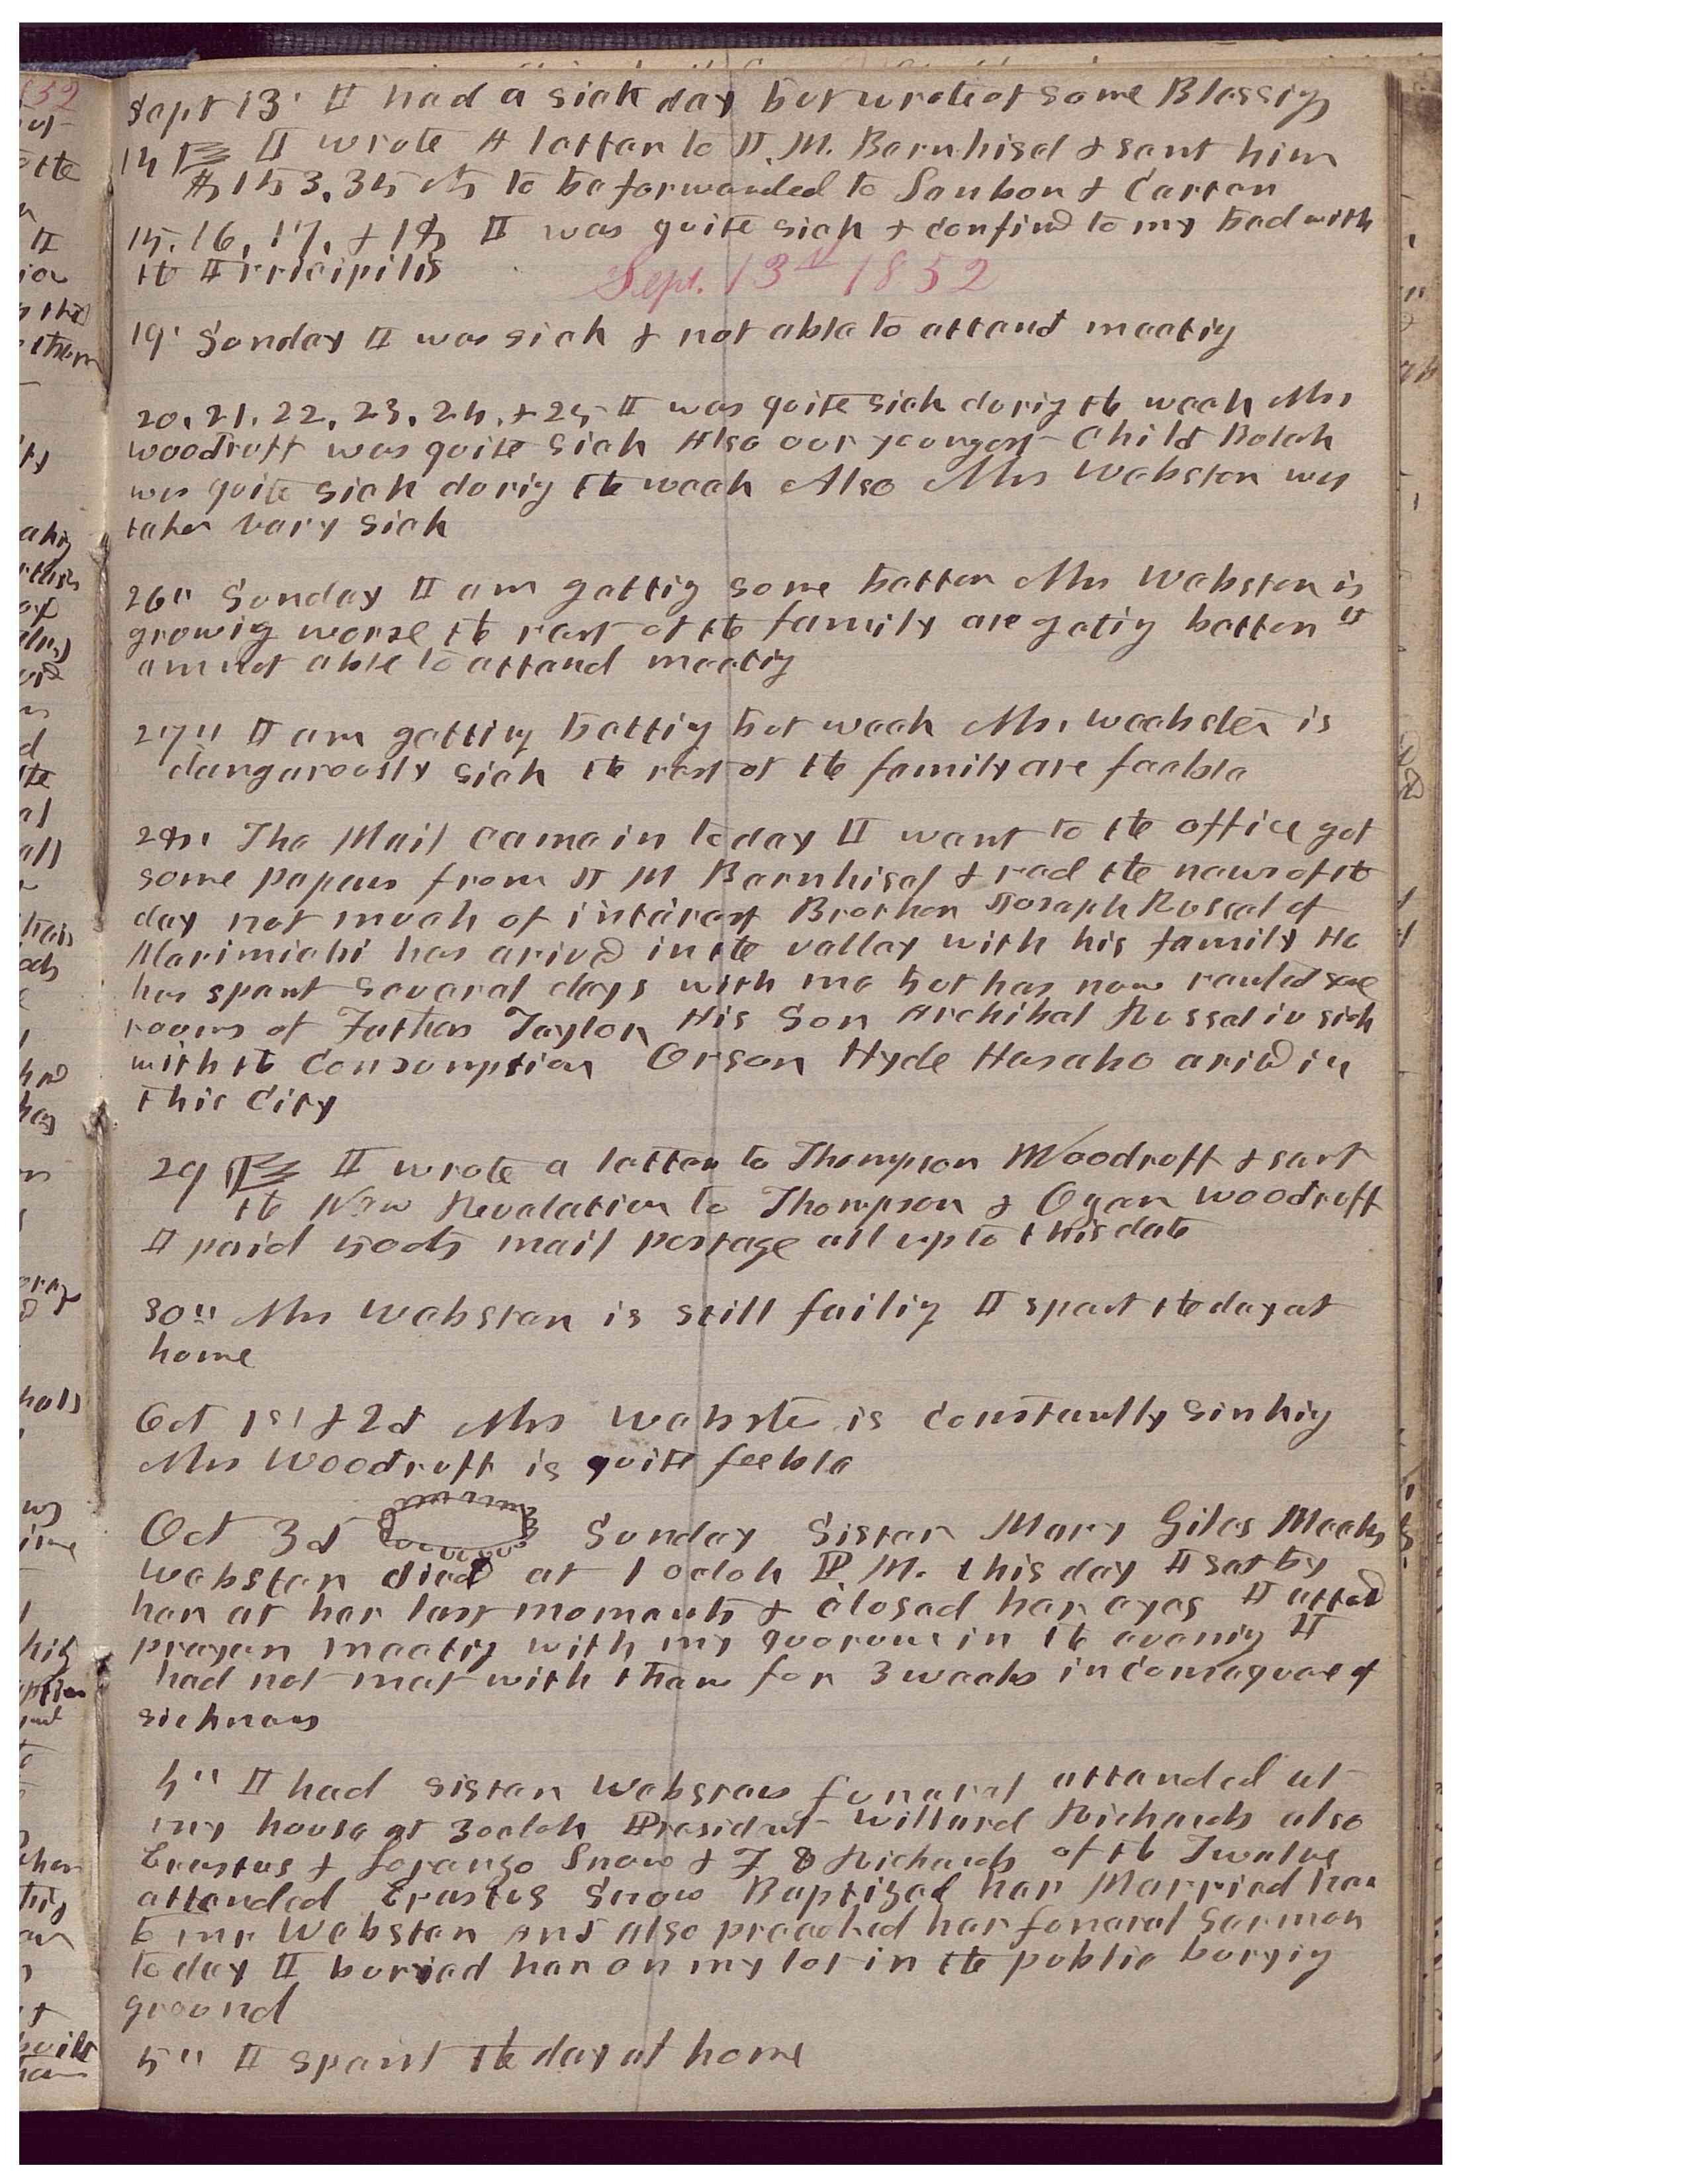 Sept 13' I had a sick day but wrote of some Blessig
14 I wrote A letter to J. M. Bernhisel & sent him
$153.35 cts to be forwarded to Lambon & Carter
15, 16, 17, & 18 I was quite sick & confind to my bed with
the Erricipilis
Sept. 13th 1852
19' Sunday I was sick & not able to attend meetig
20, 21, 22, 23, 24, & 25 I was quite sick durig the week Mrs
Woodruff was quite sick Also our youngest Child Bulah
was quite sick durig the week Also Mrs Webster was
taken vary sick
26" Sunday I am gettig some better Mrs Webster is
growig worse the rest of the family are getig better I
am not able to attend meetig
27" I am gettig bettig but weak Mrs Weebster is
dangerously sick the rest of the family are feeble
28" The Mail came in to day I went to the office got
some papers from J M Bernhisel & read the news of the
day not much of interest Brother Joseph Russel of
Marimichi has arived in the valley with his family He
has spent several days with me but has now rented
rooms of Father Taylor His Son Archibal Russel is sick
with the Consumption Orson Hyde Has also arived in
this City
29 I wrote a letter to Thompson Woodruff & sent
the New Revelation to Thompson & Ozem Woodruff
I paid 50 cts mail postage all up to this date
30" Mrs Webster is still failig I spent the day at
home
Oct 1st & 2d Mrs Webste is constantly sinkig
Mrs Woodruff is quite feeble
Oct 3d Sunday Sister Mary Giles Meeks
Webster died at 1 oclok P.M. this day I sat by
her at her last moments & closed her eyes I atted
prayer meetig with my quorum in the evenig I
had not met with them for 3 weeks in consequence of
sickness
4" I had sister Websters funeral attended at
my house at 3 oclok President Willard Richards also
Erastus & Lorenzo Snow & F D Richards of the Twelve
attended Erastus Snow Baptized her Married her
to mr Webster And also preached her funeral Sermon
to day I buried her on my lot in the public buryig
ground
5" I spent the day at home